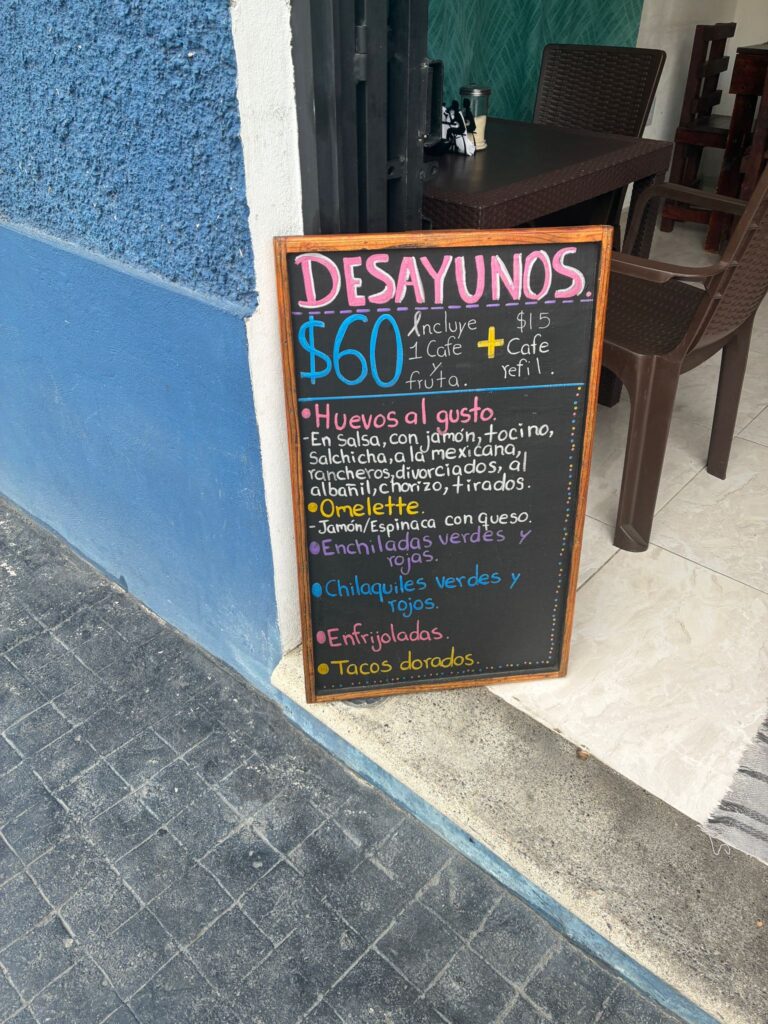 DESAYUNOS.
$60 Incluye 1 Cafe y fruta. + $15 Cafe refil.
• Huevos al gusto.
- En salsa, con jamón, tocino,
salchicha, a la mexicana,
rancheros, divorciados, al
albañil, chorizo, tirados.
• Omelette.
- Jamón/Espinaca con queso.
• Enchiladas verdes y
rojas.
• Chilaquiles verdes y
rojos.
• Enfrijoladas.
• Tacos dorados.